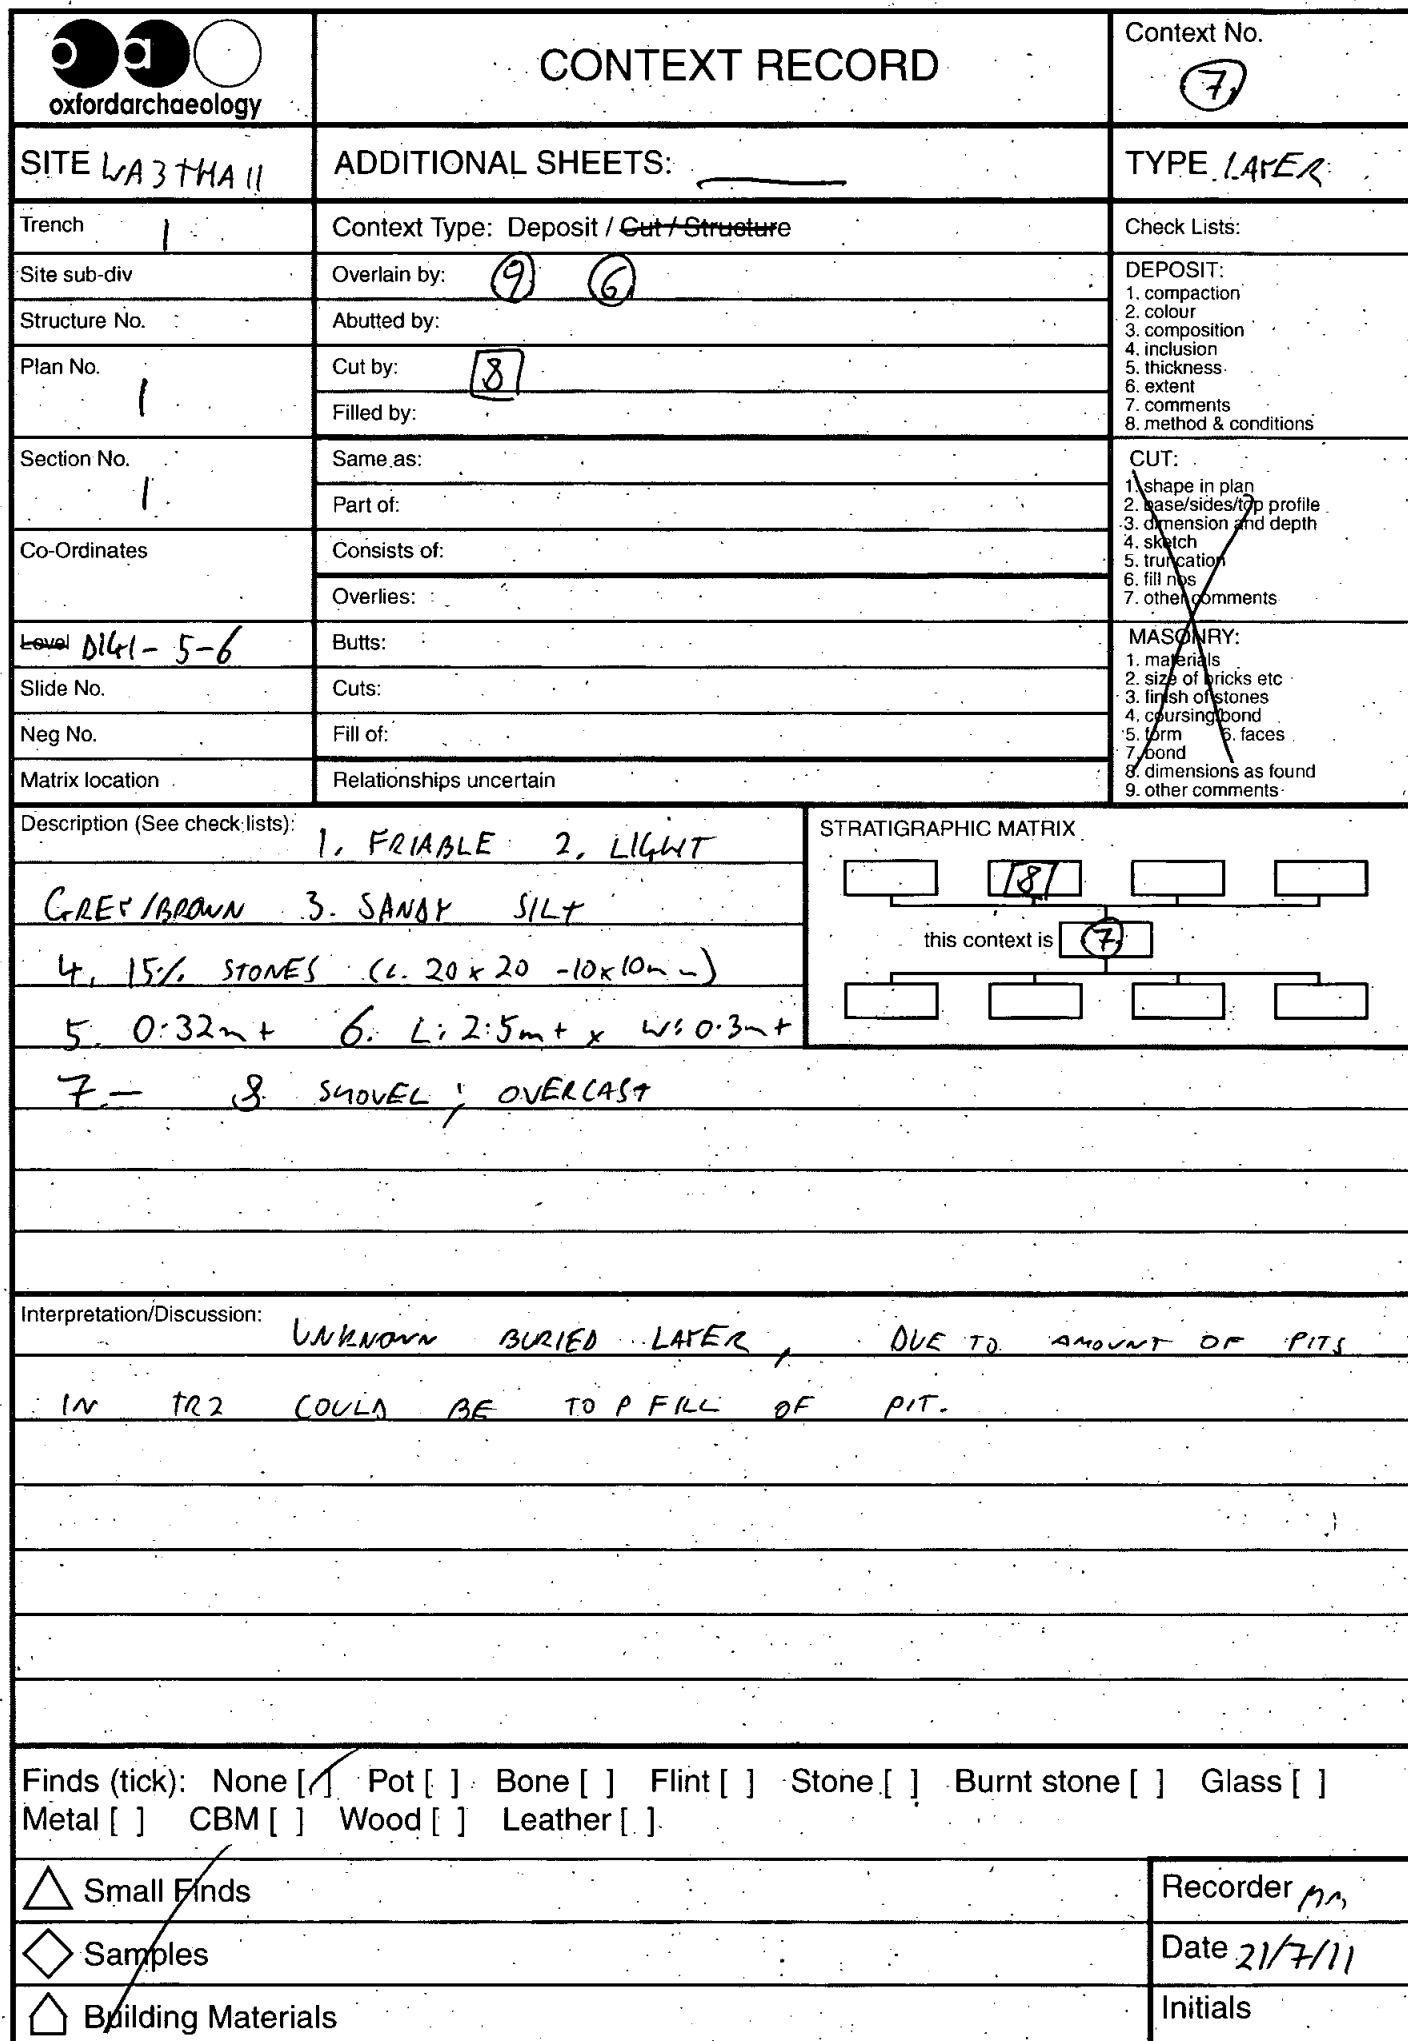 oxfordarchaeology
CONTEXT RECORD
Context No.
7
SITE WA3THA11
ADDITIONAL SHEETS: —
TYPE LAYER
Trench 1
Context Type: Deposit / Cut / Structure
Check Lists:
Site sub-div
Overlain by: 9 6
Structure No.
Abutted by:
Plan No. 1
Cut by: 8
Filled by:
Section No. 1
Same as:
Part of:
Co-Ordinates
Consists of:
Overlies:
Level DIGI- 5-6
Butts:
Slide No.
Cuts:
Neg No.
Fill of:
Matrix location
Relationships uncertain
DEPOSIT:
1. compaction
2. colour
3. composition
4. inclusion
5. thickness
6. extent
7. comments
8. method & conditions
CUT:
1. shape in plan
2. base/sides/top profile
3. dimension and depth
4. sketch
5. truncation
6. fill nos
7. other comments
MASONRY:
1. materials
2. size of bricks etc
3. finish of stones
4. coursing/bond
5. form 6. faces
7. bond
8. dimensions as found
9. other comments
Description (See check lists): 1. FRIABLE 2. LIGHT
GREY/BROWN 3. SANDY SILT
4. 15% STONES (c. 20 x 20 -10x10mm)
5. 0.32m+ 6. L: 2.5m+ x W: 0.3m+
7. — 8. SHOVEL; OVERCAST
STRATIGRAPHIC MATRIX
8
this context is 7
Interpretation/Discussion: UNKNOWN BURIED LAYER, DUE TO AMOUNT OF PITS
IN TR2 COULD BE TOP FILL OF PIT.
Finds (tick): None [/] Pot [ ] Bone [ ] Flint [ ] Stone [ ] Burnt stone [ ] Glass [ ]
Metal [ ] CBM [ ] Wood [ ] Leather [ ]
Small Finds
Samples
Building Materials
Recorder
Date 21/7/11
Initials